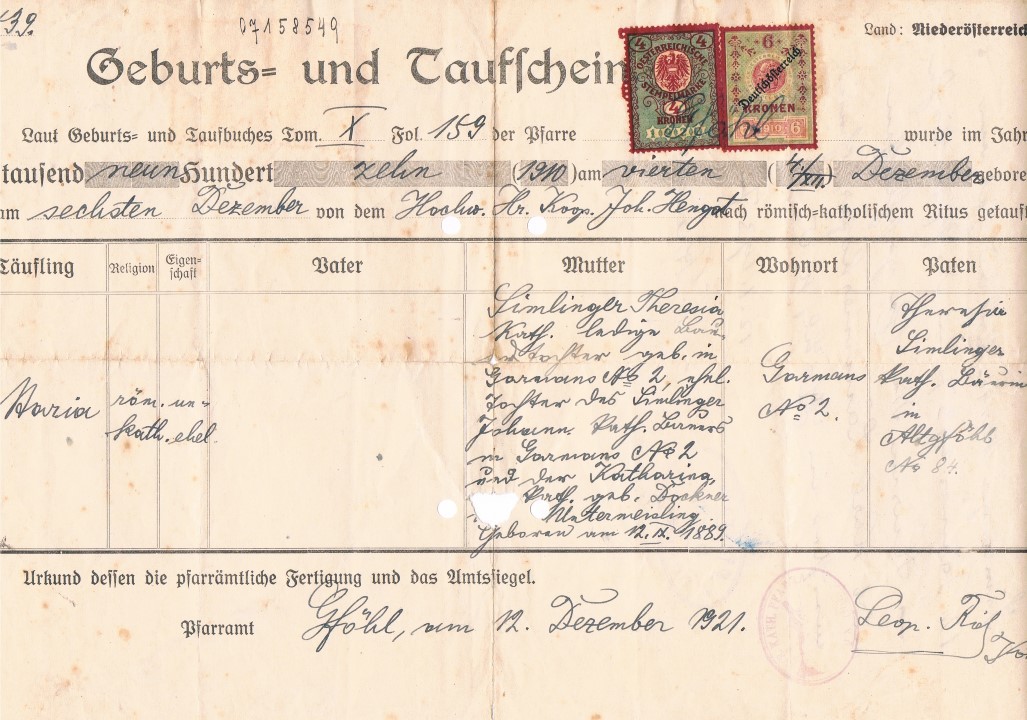 39.
07158549
Land: Niederösterreich
Geburts= und Taufschein
4 4
OESTERREICHISCHE
STEMPELMARKE
4
KRONEN
1910
6
Deutschösterreich
KRONEN
6 1910 6
Laut Geburts= und Taufbuches Tom. X Fol. 159 der Pfarre Gföhl wurde im Jahr
tausend neun Hundert zehn (1910) am vierten (4/XII.) Dezember gebore
am sechsten Dezember von dem Hochw. Hr. Koop. Joh. nach römisch=katholischem Ritus getauft
Täufling Religion Eigen=schaft Vater Mutter Wohnort Paten
Maria
röm.
kath.
un-
ehel.
Simlinger Theresia
kath. ledige Bau-
tochter geb. in
Garmans No 2, ehel.
Tochter des Simlinger
Johann kath. Bauers
in Garmans No 2
und der Katharina
kath. geb. Dockner
Untermeisling.
Geboren am 12. IX. 1889.
Garmans
No 2.
Theresia
Simlinger
kath. Bäuerin
in
Altgföhl
No 84.
Urkund dessen die pfarrämtliche Fertigung und das Amtssiegel.
Pfarramt Gföhl, am 12. Dezember 1921.
Leop.